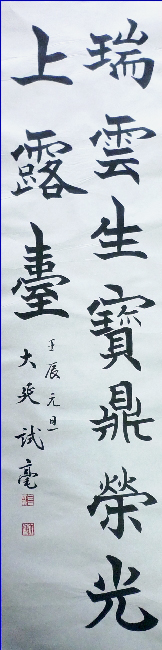 瑞雲生寶鼎榮光
上露臺
壬辰元旦
大延試毫